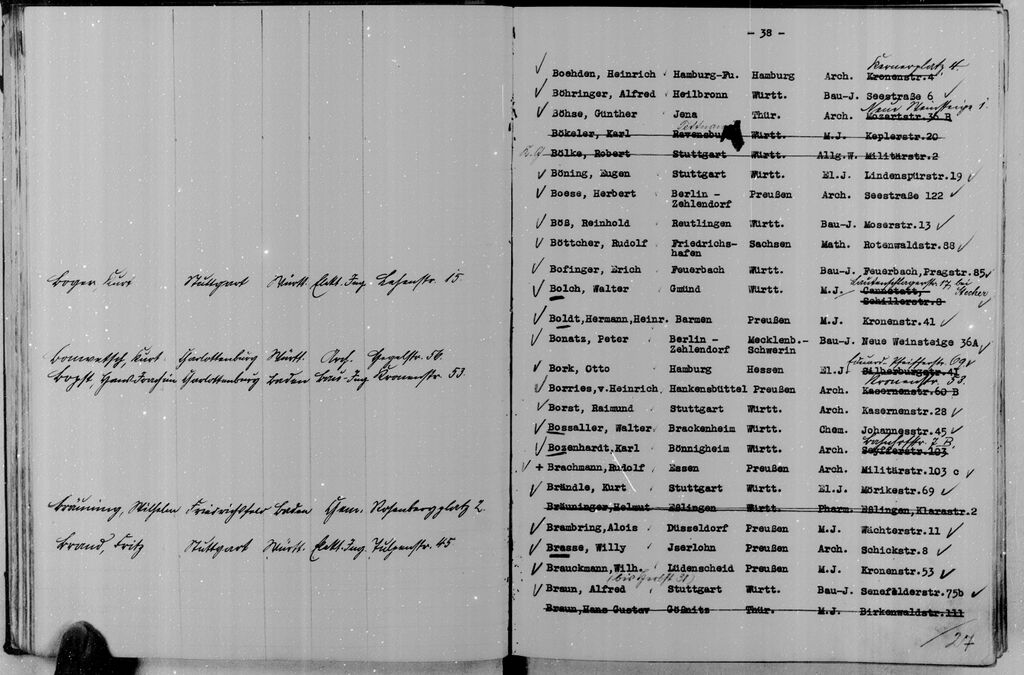 Boger Kurt Stuttgart Württ. Elekt. Ing. Lehenstr. 15
Bonwetsch, Kurt Charlottenburg Württ. Arch. Hegelstr. 56.
Bopst, Hans-Joachim Charlottenburg Baden Bau-Ing Kronenstr. 53.
Bräuning, Wilhelm Friedrichsfeld Baden Chem. Rosenbergplatz 2.
Brand, Fritz Stuttgart Württ. Elekt. Ing. Tulpenstr. 45
- 38 -
Kernerplatz 4.
Boehden, Heinrich Hamburg-Fu. Hamburg Arch. Kronenstr.4
Böhringer, Alfred Heilbronn Württ. Bau-J. Seestraße 6
Neue Weinsteige 1.
Böhse, Günther Jena Thür. Arch. Mozartstr.36 B
Bökeler, Karl Ravensbu Württ. M.J. Keplerstr.20
Bölke, Robert Stuttgart Württ. Allg.W. Militärstr.2
Böning, Eugen Stuttgart Württ. El.J. Lindenspürstr.19
Boese, Herbert Berlin - Preußen Arch. Seestraße 122
Zehlendorf
Böß, Reinhold Reutlingen Württ. Bau-J. Moserstr.13
Böttcher, Rudolf Friedrichs- Sachsen Math. Rotenwaldstr.88
hafen
Bofinger, Erich Feuerbach Württ. Bau-J. Feuerbach, Pragstr.85
Lautenschlagerstr. 17, bei
Bolch, Walter Gmünd Württ. M.J. Cannstatt, Stecher
Schillerstr.8
Boldt,Hermann,Heinr. Barmen Preußen M.J. Kronenstr.41
Bonatz, Peter Berlin - Mecklenb.- Bau-J. Neue Weinsteige 36A
Zehlendorf Schwerin
Eduard Pfeifferstr. 69
Bork, Otto Hamburg Hessen El.J. Silberburgstr.41
Kronenstr. 53.
Borries,v.Heinrich Hankensbüttel Preußen Arch. Kasernenstr.60 B
Borst, Raimund Stuttgart Württ. Arch. Kasernenstr.28
Bossaller, Walter Brackenheim Württ. Chem. Johannesstr.45
Bahnhofstr. 7 B.
Bozenhardt,Karl Bönnigheim Württ. Arch. Seyfferstr.103
+ Brachmann,Rudolf Essen Preußen Arch. Militärstr.103 c
Brändle, Kurt Stuttgart Württ. El.J. Mörikestr.69
Bräuninger,Helmut Eßlingen Württ. Pharm. Eßlingen,Klarastr.2
Brambring,Alois Düsseldorf Preußen M.J. Wächterstr.11
Brasse, Willy Jserlohn Preußen Arch. Schickstr.8
Brauckmann,Wilh. Lüdenscheid Preußen M.J. Kronenstr.53
Braun, Alfred Stuttgart Württ. Bau-J. Senefelderstr.75b
Braun,Hans Gustav Gößnitz Thür. M.J. Birkenwaldstr.111
27